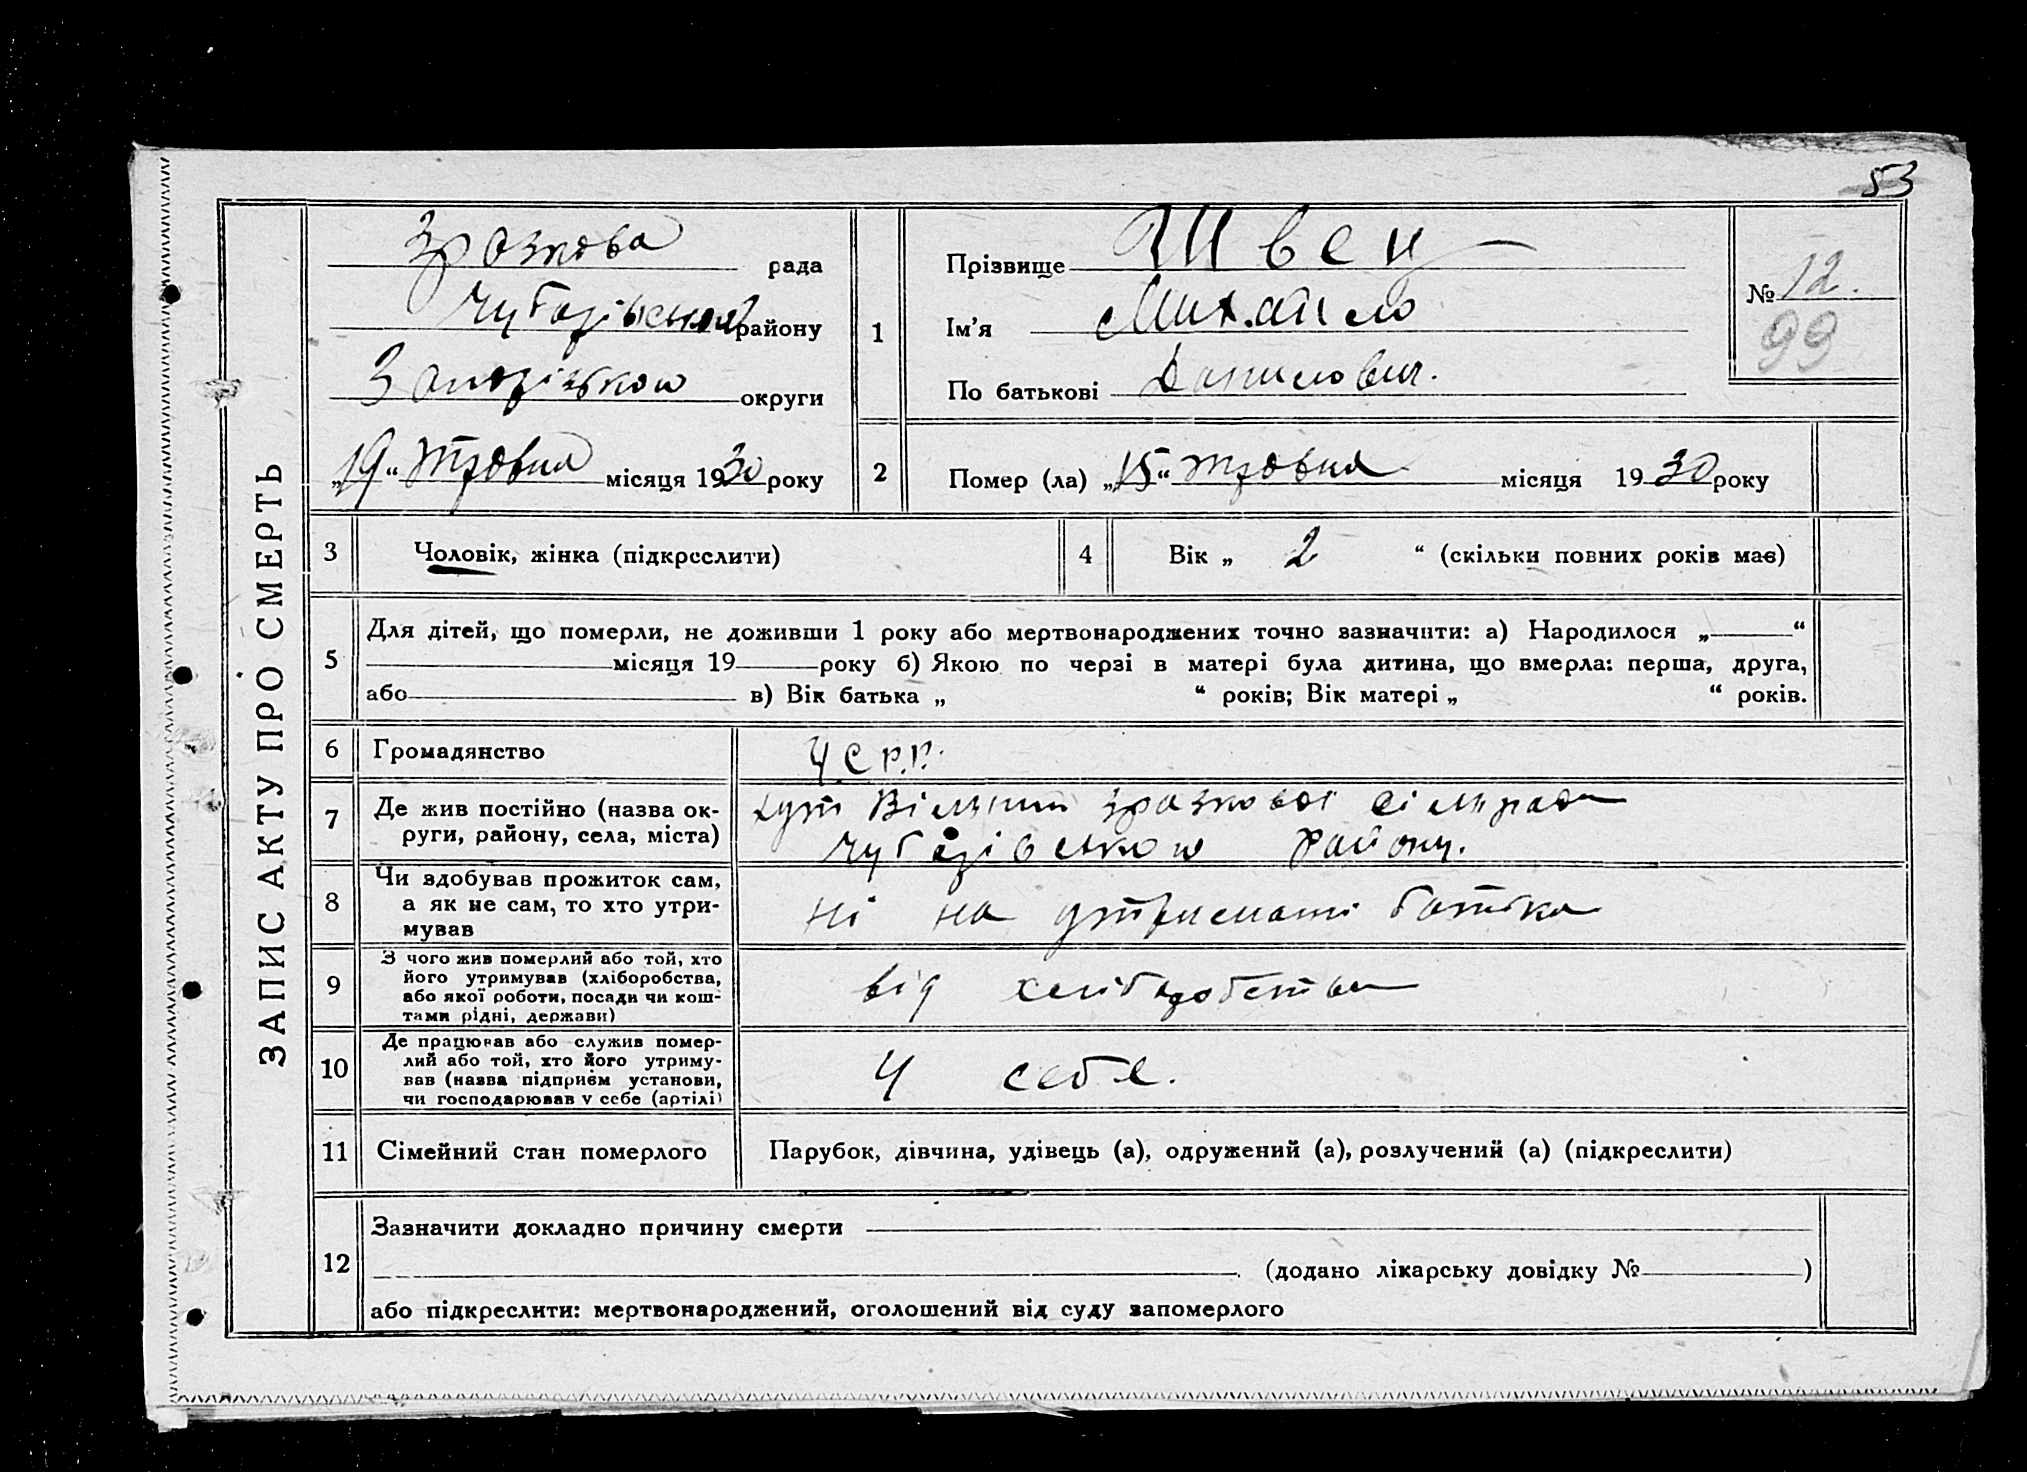 53
ЗАПИС АКТУ ПРО СМЕРТЬ
Зразкова рада
Чубарівського району
Запорізької округи
„19“ травня місяця 1930 року
1
Прізвище Швец
Ім'я Михайло
По батькові Данилович.
№ 12.
99
2
Помер (ла) „15“ травня місяця 1930 року
3
Чоловік, жінка (підкреслити)
4
Вік „ 2 “ (скільки повних років має)
5
Для дітей, що померли, не доживши 1 року або мертвонароджених точно зазначити: а) Народилося „ “
місяця 19 року б) Якою по черзі в матері була дитина, що вмерла: перша, друга,
або в) Вік батька „ “ років; Вік матері „ “ років.
6
Громадянство
УСРР.
7
Де жив постійно (назва ок-
руги, району, села, міста)
хут Вільний зразкової сільради
Чубарівської району.
8
Чи здобував прожиток сам,
а як не сам, то хто утри-
мував
ні на утриманні батька
9
З чого жив померлий або той, хто
його утримував (хліборобства,
або якої роботи, посади чи кош-
тами рідні, держави)
від хліборобства
10
Де працював або служив помер-
лий або той, хто його утриму-
вав (назва підприєм установи,
чи господарював у себе (артілі)
У себе.
11
Сімейний стан померлого
Парубок, дівчина, удівець (а), одружений (а), розлучений (а) (підкреслити)
12
Зазначити докладно причину смерти
(додано лікарську довідку № )
або підкреслити: мертвонароджений, оголошений від суду запомерлого